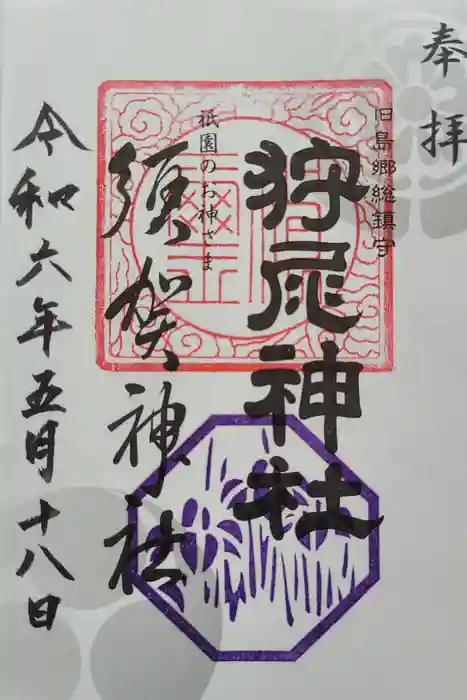 奉拝
旧島郷総鎮守
狩尾神社
祇園のお神さま
須賀神社
令和六年五月十八日